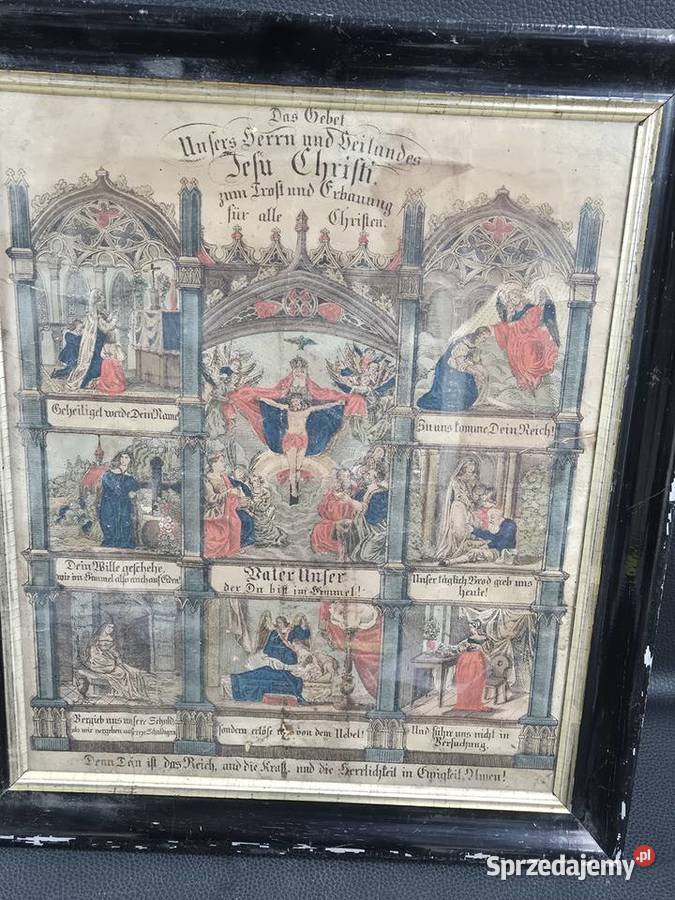 Das Gebet
Unsers Herrn und Heilandes
Jesu Christi.
zum Trost und Erbauung
für alle Christen.
Geheiliget werde Dein Name
Zu uns komme Dein Reich!
Dein Wille geschehe,
wie im Himmel also auch auf Erden!
Vater Unser
der Du bist im Himmel!
Unser täglich Brod gieb uns
heute!
Vergieb uns unsere Schuld,
als wir vergeben unseren Schuldigern
sondern erlöse uns von dem Uebel!
Und führe uns nicht in
Versuchung.
Denn Dein ist das Reich, und die Kraft, und die Herrlichkeit in Ewigkeit, Amen!
Sprzedajemy.pl